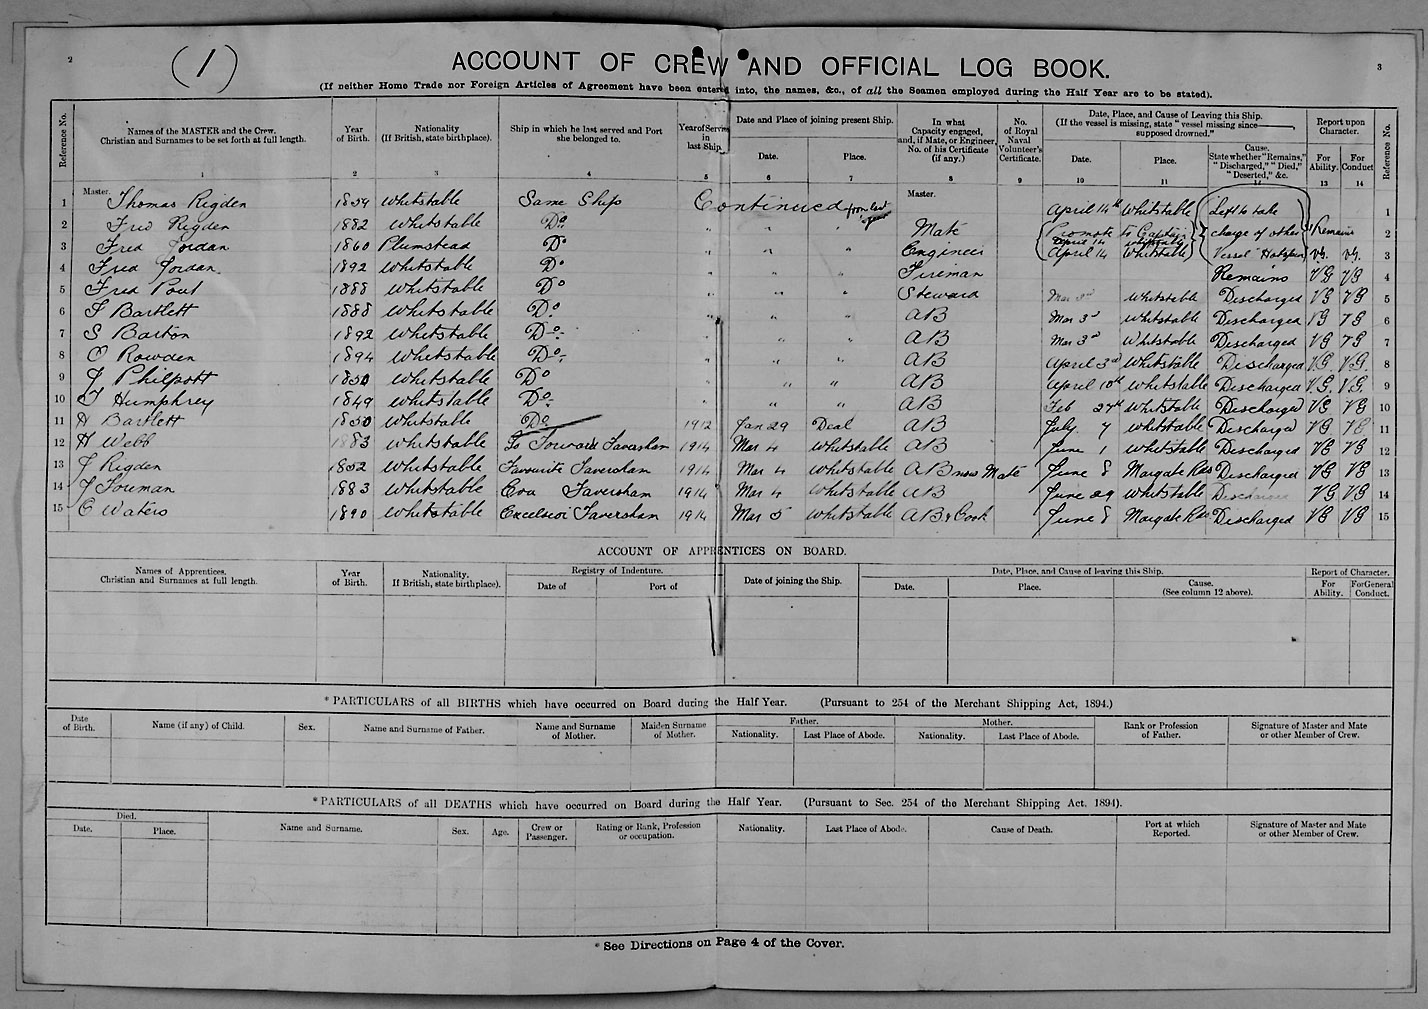 2
(1)
3
ACCOUNT OF CREW AND OFFICIAL LOG BOOK.
(If neither Home Trade nor Foreign Articles of Agreement have been entered into, the names, &c., of all the Seamen employed during the Half Year are to be stated).
Reference No. Names of the MASTER and the Crew. Christian and Surnames to be set forth at full length. Year of Birth. Nationality (If British, state birthplace). Ship in which he last served and Port she belonged to. Year of Service in last Ship. Date and Place of joining present Ship. Date. Place. In what Capacity engaged, and, if Mate, or Engineer, No. of his Certificate (if any.) No. of Royal Naval Volunteer's Certificate. Date, Place, and Cause of Leaving this Ship. (If the vessel is missing, state "vessel missing since supposed drowned." Date. Place. Cause. State whether "Remains," "Discharged," "Died," "Deserted," &c. Report upon Character. For Ability. For Conduct Reference No.
1 2 3 4 5 6 7 8 9 10 11 12 13 14
1 Master. Thomas Rigden 1859 Whitstable Same Ship Continued from last year Master. April 14th Whitstable Left to take 1
2 Fred Rigden 1882 Whitstable Do " " " Mate Promote to Captain April 14 Whitstable charge of other Remains 2
3 Fred Jordan 1860 Plumstead Do " " " Engineer April 14 Whitstable Vessel VG. VG. 3
4 Fred Jordan 1892 Whitstable Do " " " Fireman Remains VG VG 4
5 Fred Pout 1888 Whitstable Do " " " Steward Mar 3rd Whitstable Discharged VG VG 5
6 F Bartlett 1888 Whitstable Do " " " AB Mar 3rd Whitstable Discharged VG VG 6
7 S Barton 1892 Whitstable Do " " " AB Mar 3rd Whitstable Discharged VG VG 7
8 O Rowden 1894 Whitstable Do " " " AB April 3rd Whitstable Discharged VG. VG. 8
9 J Philpott 1850 Whitstable Do " " " AB April 10th Whitstable Discharged VG. VG. 9
10 T Humphrey 1849 Whitstable Do " " " AB Feb 24th Whitstable Discharged VG VG 10
11 H Bartlett 1850 Whitstable Do 1912 Jan 29 Deal AB July 7 Whitstable Discharged VG VG 11
12 H Webb 1883 Whitstable Go Forward Faversham 1914 Mar 4 Whitstable AB June 1 Whitstable Discharged VG VG 12
13 J Rigden 1852 Whitstable Favourite Faversham 1914 Mar 4 Whitstable AB now Mate June 8 Margate Rds Discharged VG VG 13
14 J Foreman 1883 Whitstable Eva Faversham 1914 Mar 4 Whitstable AB June 29 Whitstable Discharged VG VG 14
15 C Waters 1890 Whitstable Excelsior Faversham 1914 Mar 5 Whitstable AB & Cook June 8 Margate Rds Discharged VG VG 15
ACCOUNT OF APPRENTICES ON BOARD.
Names of Apprentices. Christian and Surnames at full length. Year of Birth. Nationality. If British, state birthplace). Registry of Indenture. Date of Port of Date of joining the Ship. Date, Place, and Cause of leaving this Ship. Date. Place. Cause. (See column 12 above). Report of Character. For Ability. For General Conduct.
*PARTICULARS of all BIRTHS which have occurred on Board during the Half Year. (Pursuant to 254 of the Merchant Shipping Act, 1894.)
Date of Birth. Name (if any) of Child. Sex. Name and Surname of Father. Name and Surname of Mother. Maiden Surname of Mother. Father. Nationality. Last Place of Abode. Mother. Nationality. Last Place of Abode. Rank or Profession of Father. Signature of Master and Mate or other Member of Crew.
*PARTICULARS of all DEATHS which have occurred on Board during the Half Year. (Pursuant to Sec. 254 of the Merchant Shipping Act. 1894).
Died. Date. Place. Name and Surname. Sex. Age. Crew or Passenger. Rating or Rank, Profession or occupation. Nationality. Last Place of Abode. Cause of Death. Port at which Reported. Signature of Master and Mate or other Member of Crew.
*See Directions on Page 4 of the Cover.